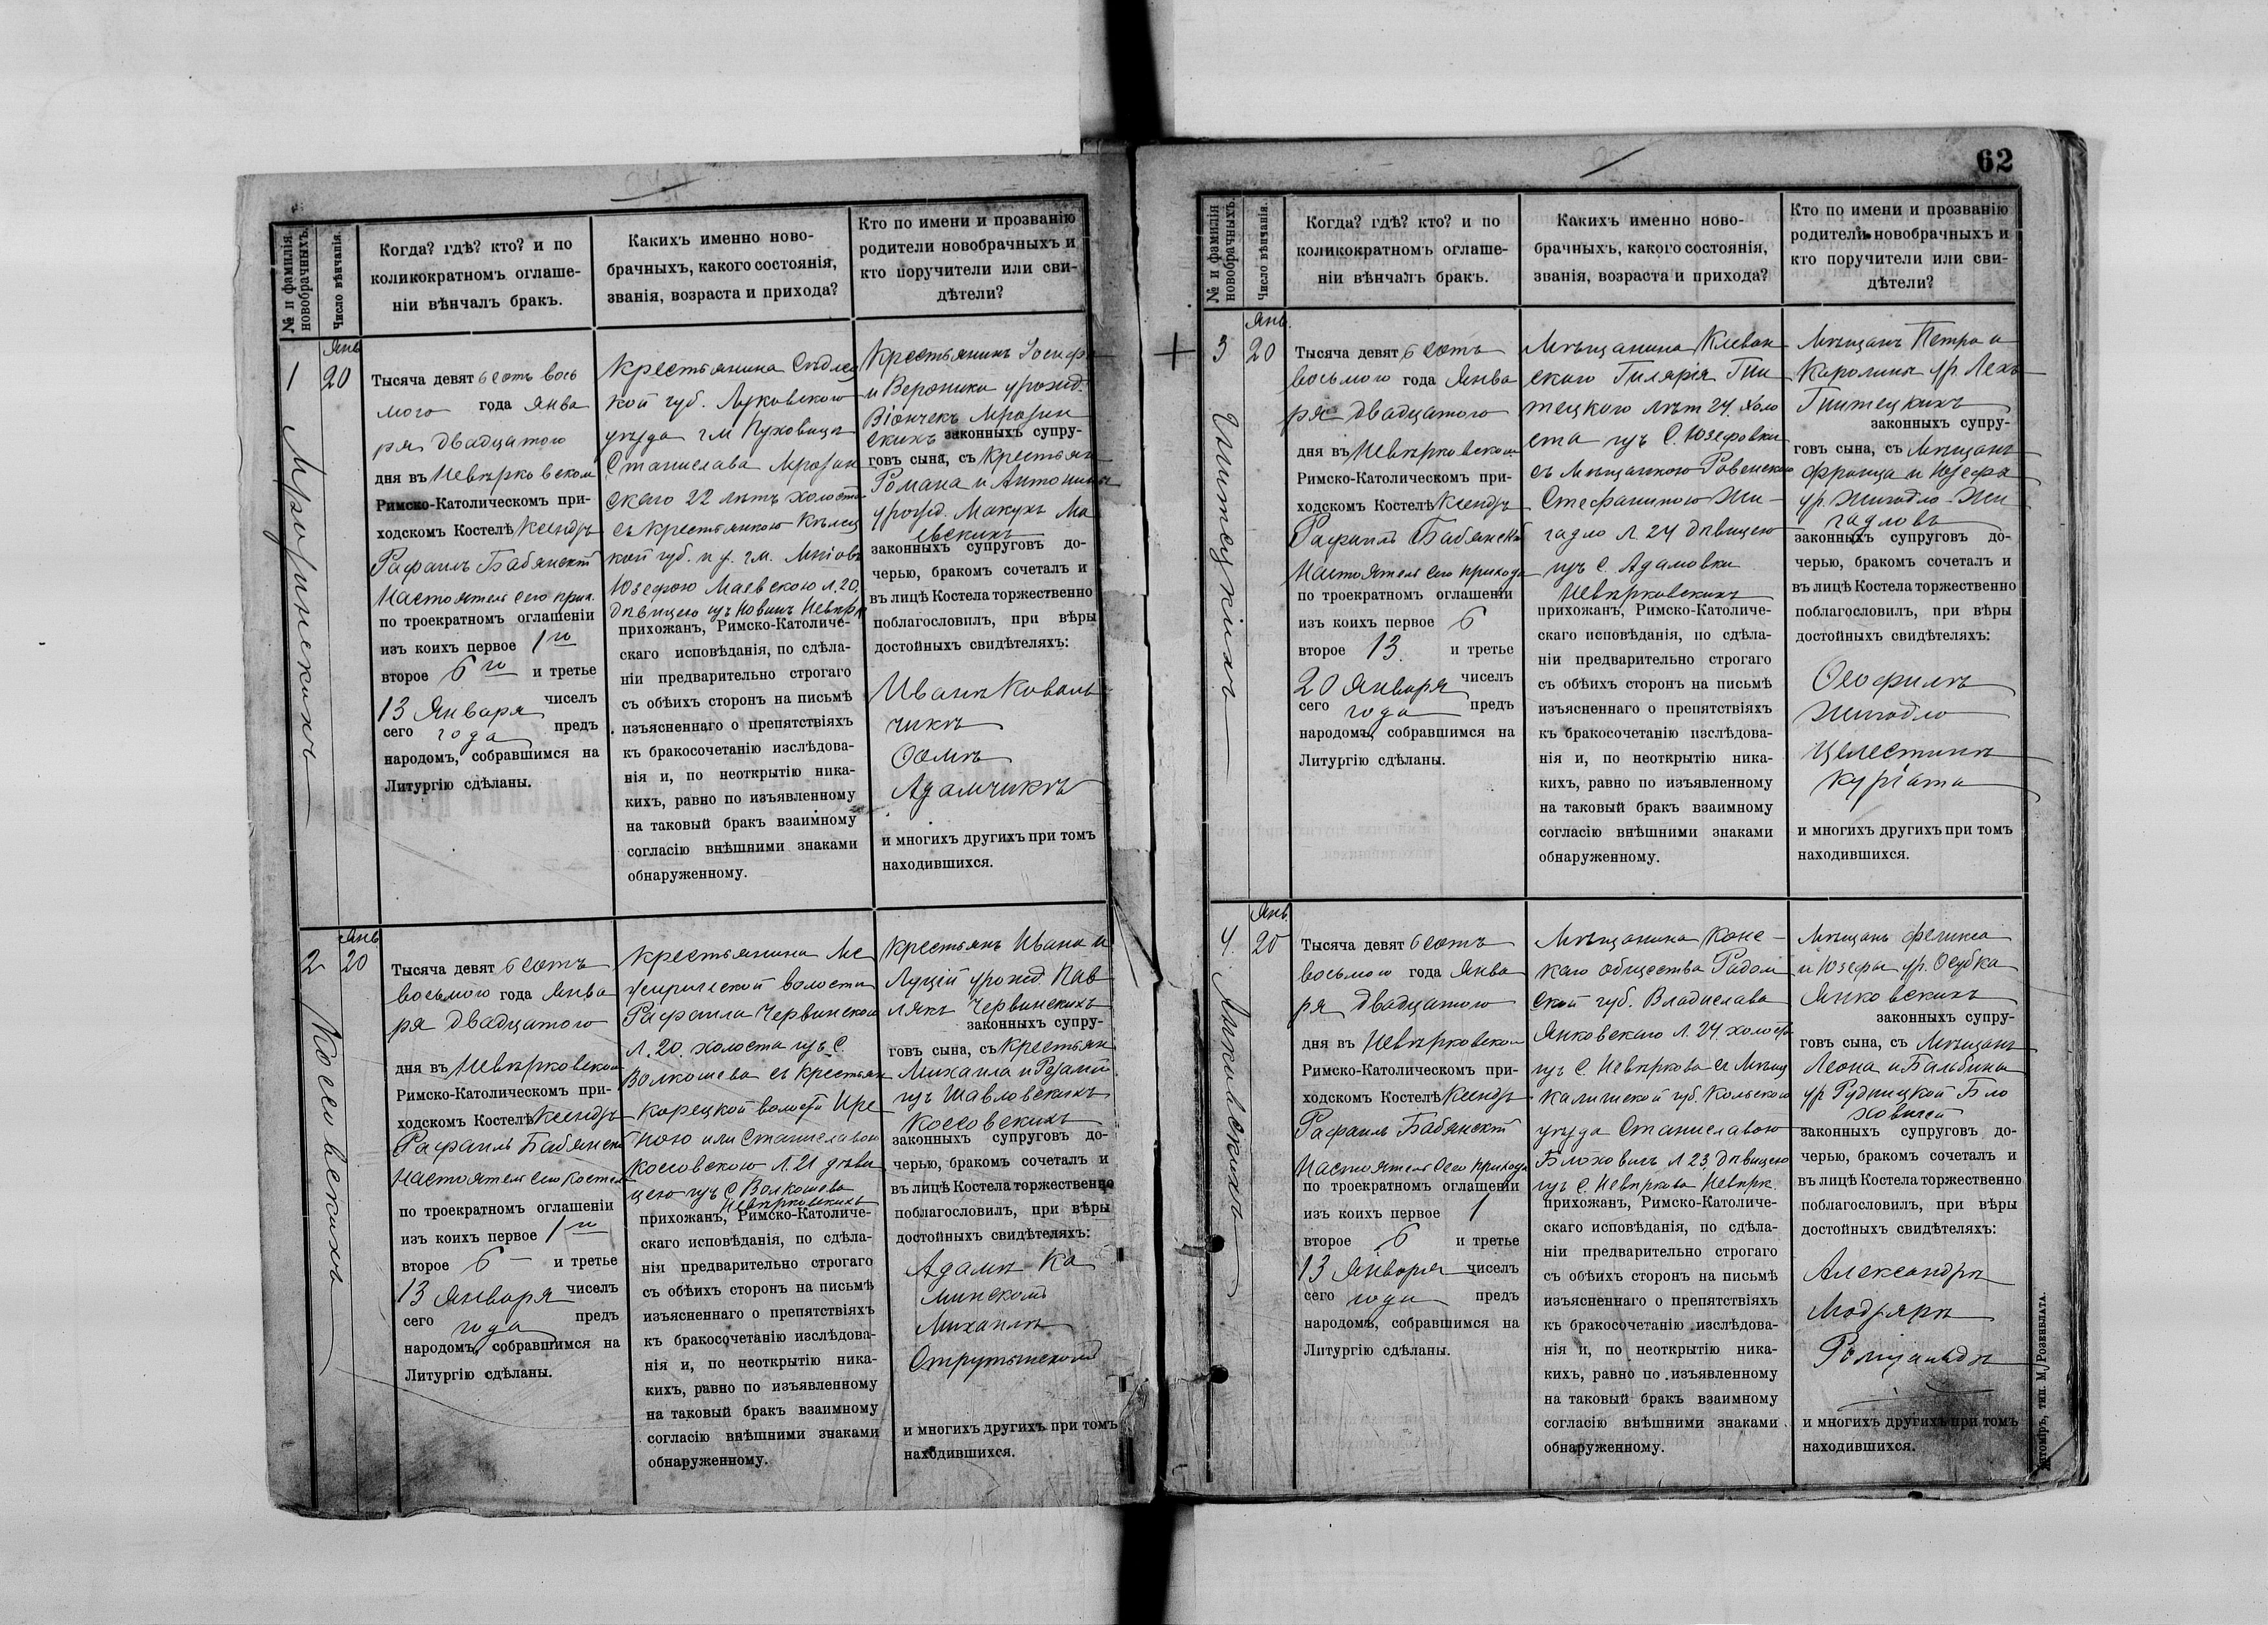 № и фамилія новобрачныхъ.
Число вѣнчанія.
Когда? гдѣ? кто? и по
коликократномъ оглаше-
ніи вѣнчалъ бракъ.
Какихъ именно ново-
брачныхъ, какого состоянія,
званія, возраста и прихода?
Кто по имени и прозванію
родители новобрачныхъ и
кто поручители или сви-
дѣтели?
1
Янв
20
Мрозинскихъ
Тысяча девятьсотъ вось
мого года Янва
ря двадцатого
дня въ Невѣрковском
Римско-Католическомъ при-
ходскомъ Костелѣ Ксендзъ
Рафаилъ Бабянскій
Настоятель сего прих.
по троекратномъ оглашеніи
изъ коихъ первое 1го
второе 6го и третье
13 Января чиселъ
сего года предъ
народомъ, собравшимся на
Литургію сдѣланы.
Крестьянина Сѣдлец
кой губ. Луковского
уѣзда гм Пуховица
Станислава Мрозин
ского 22 лѣтъ холоста
съ крестьянкою Кѣлец
кой губ. и у. гм. Мніовъ
Юзефою Маевскою л. 20.
дѣвицею изъ Новинъ Невѣрк
прихожанъ, Римско-Католиче-
скаго исповѣданія, по сдѣла-
ніи предварительно строгаго
съ обѣихъ сторонъ на письмѣ
изъясненнаго о препятствіяхъ
къ бракосочетанію изслѣдова-
нія и, по неоткрытію ника-
кихъ, равно по изъявленному
на таковый бракъ взаимному
согласію внѣшними знаками
обнаруженному.
Крестьянинъ Іосифа
и Вероники урожд.
Віончекъ Мрозин
скихъ законныхъ супру-
говъ сына, съ Крестьян
Романа и Антонины
урожд. Макухъ Ма
евскихъ
законныхъ супруговъ до-
черью, бракомъ сочеталъ и
въ лицѣ Костела торжественно
поблагословилъ, при вѣры
достойныхъ свидѣтеляхъ:
Иванъ Коваль
чикъ
Ѳома
Адамчикъ
и многихъ другихъ при томъ
находившихся.
2
Янв
20
Коссовскихъ
Тысяча девятьсотъ
восьмого года Янва
ря двадцатого
дня въ Невѣрковском
Римско-Католическомъ при-
ходскомъ Костелѣ Ксендзъ
Рафаилъ Бабянскій
Настоятель сего Костела
по троекратномъ оглашеніи
изъ коихъ первое 1го
второе 6 и третье
13 Января чиселъ
сего года предъ
народомъ, собравшимся на
Литургію сдѣланы.
Крестьянина Ме
жиричской волости
Рафаила Червинского
л. 20. холоста изъ с.
Волкошева съ крестьян
Корецкой волости Ире
ною или Станиславою
Коссовскою л. 21 дѣви
цею изъ с Волкошева
Невѣрковскихъ
прихожанъ, Римско-Католиче-
скаго исповѣданія, по сдѣла-
ніи предварительно строгаго
съ обѣихъ сторонъ на письмѣ
изъясненнаго о препятствіяхъ
къ бракосочетанію изслѣдова-
нія и, по неоткрытію ника-
кихъ, равно по изъявленному
на таковый бракъ взаимному
согласію внѣшними знаками
обнаруженному.
Крестьянъ Ивана и
Луціи урожд. Пав
лякъ Червинскихъ
законныхъ супру-
говъ сына, съ Крестьян
Михаила и Розаліи
изъ Шавловскихъ
Коссовскихъ
законныхъ супруговъ до-
черью, бракомъ сочеталъ и
въ лицѣ Костела торжественно
поблагословилъ, при вѣры
достойныхъ свидѣтеляхъ:
Адамъ Ка
минскій
Михаилъ
Струтынскій
и многихъ другихъ при томъ
находившихся.
62
№ и фамилія новобрачныхъ.
Число вѣнчанія.
Когда? гдѣ? кто? и по
коликократномъ оглаше-
ніи вѣнчалъ бракъ.
Какихъ именно ново-
брачныхъ, какого состоянія,
званія, возраста и прихода?
Кто по имени и прозванію
родители новобрачныхъ и
кто поручители или сви-
дѣтели?
3
Янв.
20
Тысяча девятьсотъ
восьмого года Янва
ря двадцатого
дня въ Невѣрковском
Римско-Католическомъ при-
ходскомъ Костелѣ Ксендзъ
Рафаилъ Бабянскій
Настоятель сего прихода
по троекратномъ оглашеніи
изъ коихъ первое 6
второе 13. и третье
20 Января чиселъ
сего года предъ
народомъ, собравшимся на
Литургію сдѣланы.
Мѣщанина Клеван
ского Гилярія Гни
тецкого лѣт 24. холо
ста изъ с. Юзефовки
съ Мѣщанкою Ровенскою
Стефаниею Жи-
гадло л. 24 дѣвицею
изъ с. Адамовки
Невѣрковскихъ
прихожанъ, Римско-Католиче-
скаго исповѣданія, по сдѣла-
ніи предварительно строгаго
съ обѣихъ сторонъ на письмѣ
изъясненнаго о препятствіяхъ
къ бракосочетанію изслѣдова-
нія и, по неоткрытію ника-
кихъ, равно по изъявленному
на таковый бракъ взаимному
согласію внѣшними знаками
обнаруженному.
Мѣщанъ Петра и
Каролины ур. Лехъ
Гнитецкихъ
законныхъ супру-
говъ сына, съ Мѣщанъ
Франца и Юзефа
ур. Жигадло-Жи
гадловъ
законныхъ супруговъ до-
черью, бракомъ сочеталъ и
въ лицѣ Костела торжественно
поблагословилъ, при вѣры
достойныхъ свидѣтеляхъ:
Ѳеофилъ
Жигадло
Целестинъ
Курѓата
и многихъ другихъ при томъ
находившихся.
4.
Янв.
20
Янковскихъ
Тысяча девятьсотъ
восьмого года Янва
ря двадцатого
дня въ Невѣрковском
Римско-Католическомъ при-
ходскомъ Костелѣ Ксендзъ
Рафаилъ Бабянскій
Настоятель Сего прихода
по троекратномъ оглашеніи
изъ коихъ первое 1
второе 6 и третье
13 Января чиселъ
сего года предъ
народомъ, собравшимся на
Литургію сдѣланы.
Мѣщанина Коне-
каго общества Радом
ской губ. Владислава
Янковскаго л. 24 холост
изъ с. Невѣркова съ Мѣщ
Калишской губ. Кольского
уѣзда Станиславою
Блоховичъ л 23, дѣвицею
изъ с. Невѣркова Невѣрк.
прихожанъ, Римско-Католиче-
скаго исповѣданія, по сдѣла-
ніи предварительно строгаго
съ обѣихъ сторонъ на письмѣ
изъясненнаго о препятствіяхъ
къ бракосочетанію изслѣдова-
нія и, по неоткрытію ника-
кихъ, равно по изъявленному
на таковый бракъ взаимному
согласію внѣшними знаками
обнаруженному.
Мѣщанъ Феликса
и Юзефы ур. Осубка
Янковскихъ
законныхъ супру-
говъ сына, съ Мѣщанъ
Леона и Бальбины
ур Рудницкой Бло
ховичей
законныхъ супруговъ до-
черью, бракомъ сочеталъ и
въ лицѣ Костела торжественно
поблагословилъ, при вѣры
достойныхъ свидѣтеляхъ:
Александръ
Модзяръ
Ромуальдъ
и многихъ другихъ при томъ
находившихся.
Житоміръ, тип. М. Розенблата.